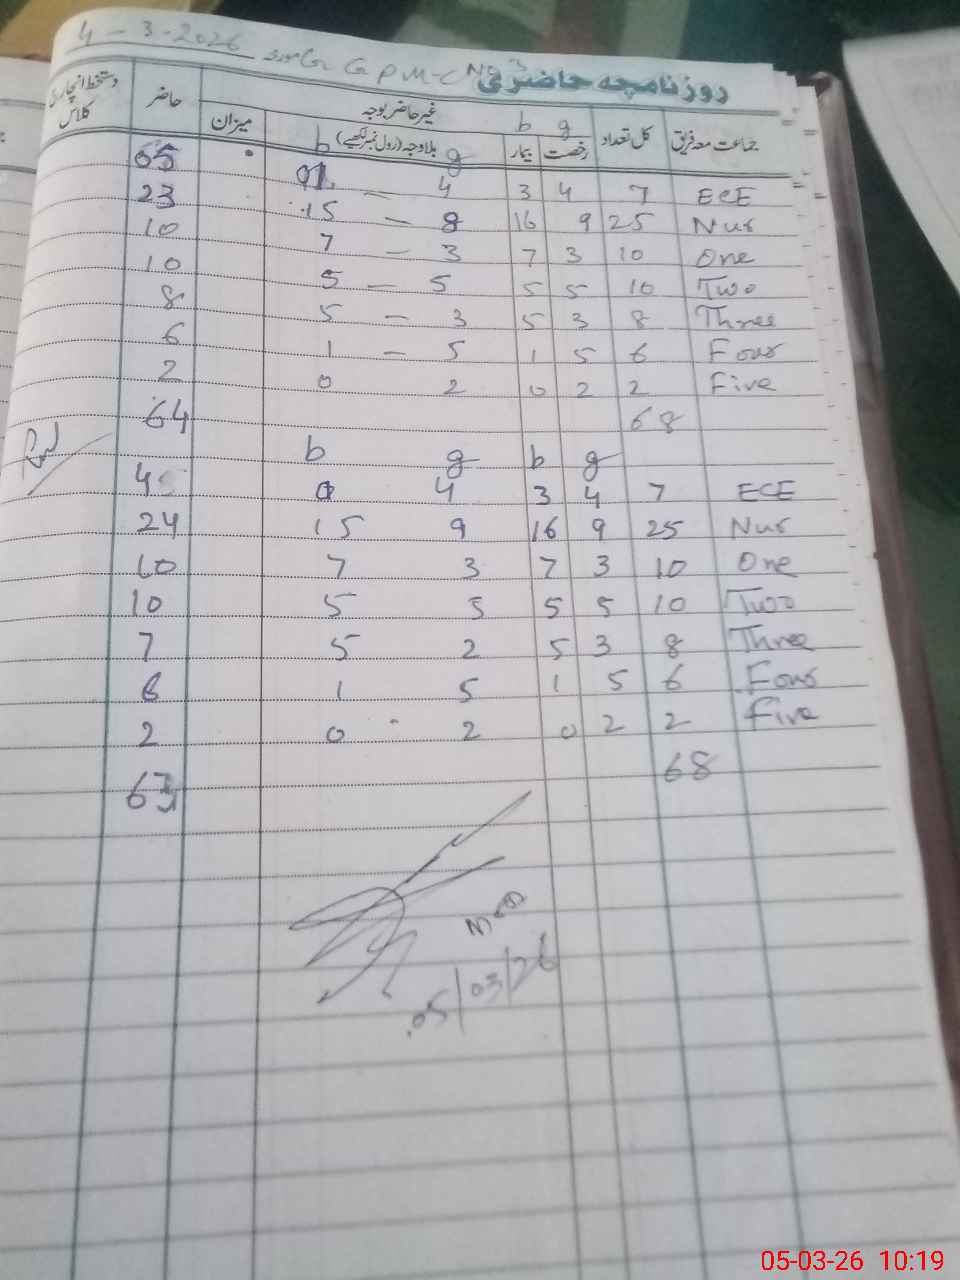 4 - 3 - 2026 GPMC No 3
روزنامچہ حاضری
جماعت معہ فریق کل تعداد غیر حاضر بوجہ میزان حاضر دستخط انچارج کلاس
g b
رخصت بیمار بلاوجہ (رول نمبر لکھیے)
g b
ECE 7 4 3 4 - 01 05
Nur 25 9 16 8 - 15 23
One 10 3 7 3 - 7 10
Two 10 5 5 5 - 5 10
Three 8 3 5 3 - 5 8
Four 6 5 1 5 - 1 6
Five 2 2 0 2 0 2
68 64
g b g b
ECE 7 4 3 4 0 4
Nur 25 9 16 9 15 24
One 10 3 7 3 7 10
Two 10 5 5 5 5 10
Three 8 3 5 2 5 7
Four 6 5 1 5 1 6
Five 2 2 0 2 0 2
68 63
05/03/26
05-03-26 10:19